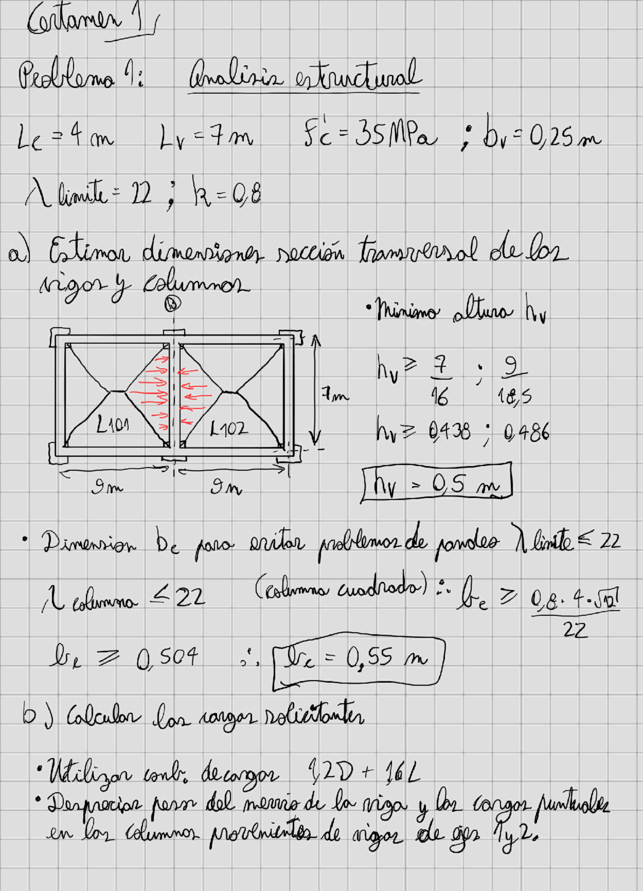 Certamen 1
Problema 1: Analisis estructural
Lc = 4 m Lv = 7 m f'c = 35 MPa ; bv = 0,25 m
λ limite = 22 ; k = 0,8
a) Estimar dimensiones sección transversal de las
vigas y columnas
B
• Minimo altura hv
hv ≥ 7/16 ; 9/18,5
7m
L101 L102
hv ≥ 0,438 ; 0,486
9m 9m
hv = 0,5 m
• Dimension bc para evitar problemas de pandeo λ limite ≤ 22
λ columna ≤ 22 (columna cuadrada) ∴ bc ≥ 0,8 · 4 · √12 / 22
bc ≥ 0,504 ∴ bc = 0,55 m
b) Calcular las cargas solicitantes
• Utilizar comb. de cargas 1,2D + 1,6L
• Despreciar peso del nervio de la viga y las cargas puntuales
en las columnas provenientes de vigas de ejes 1 y 2.